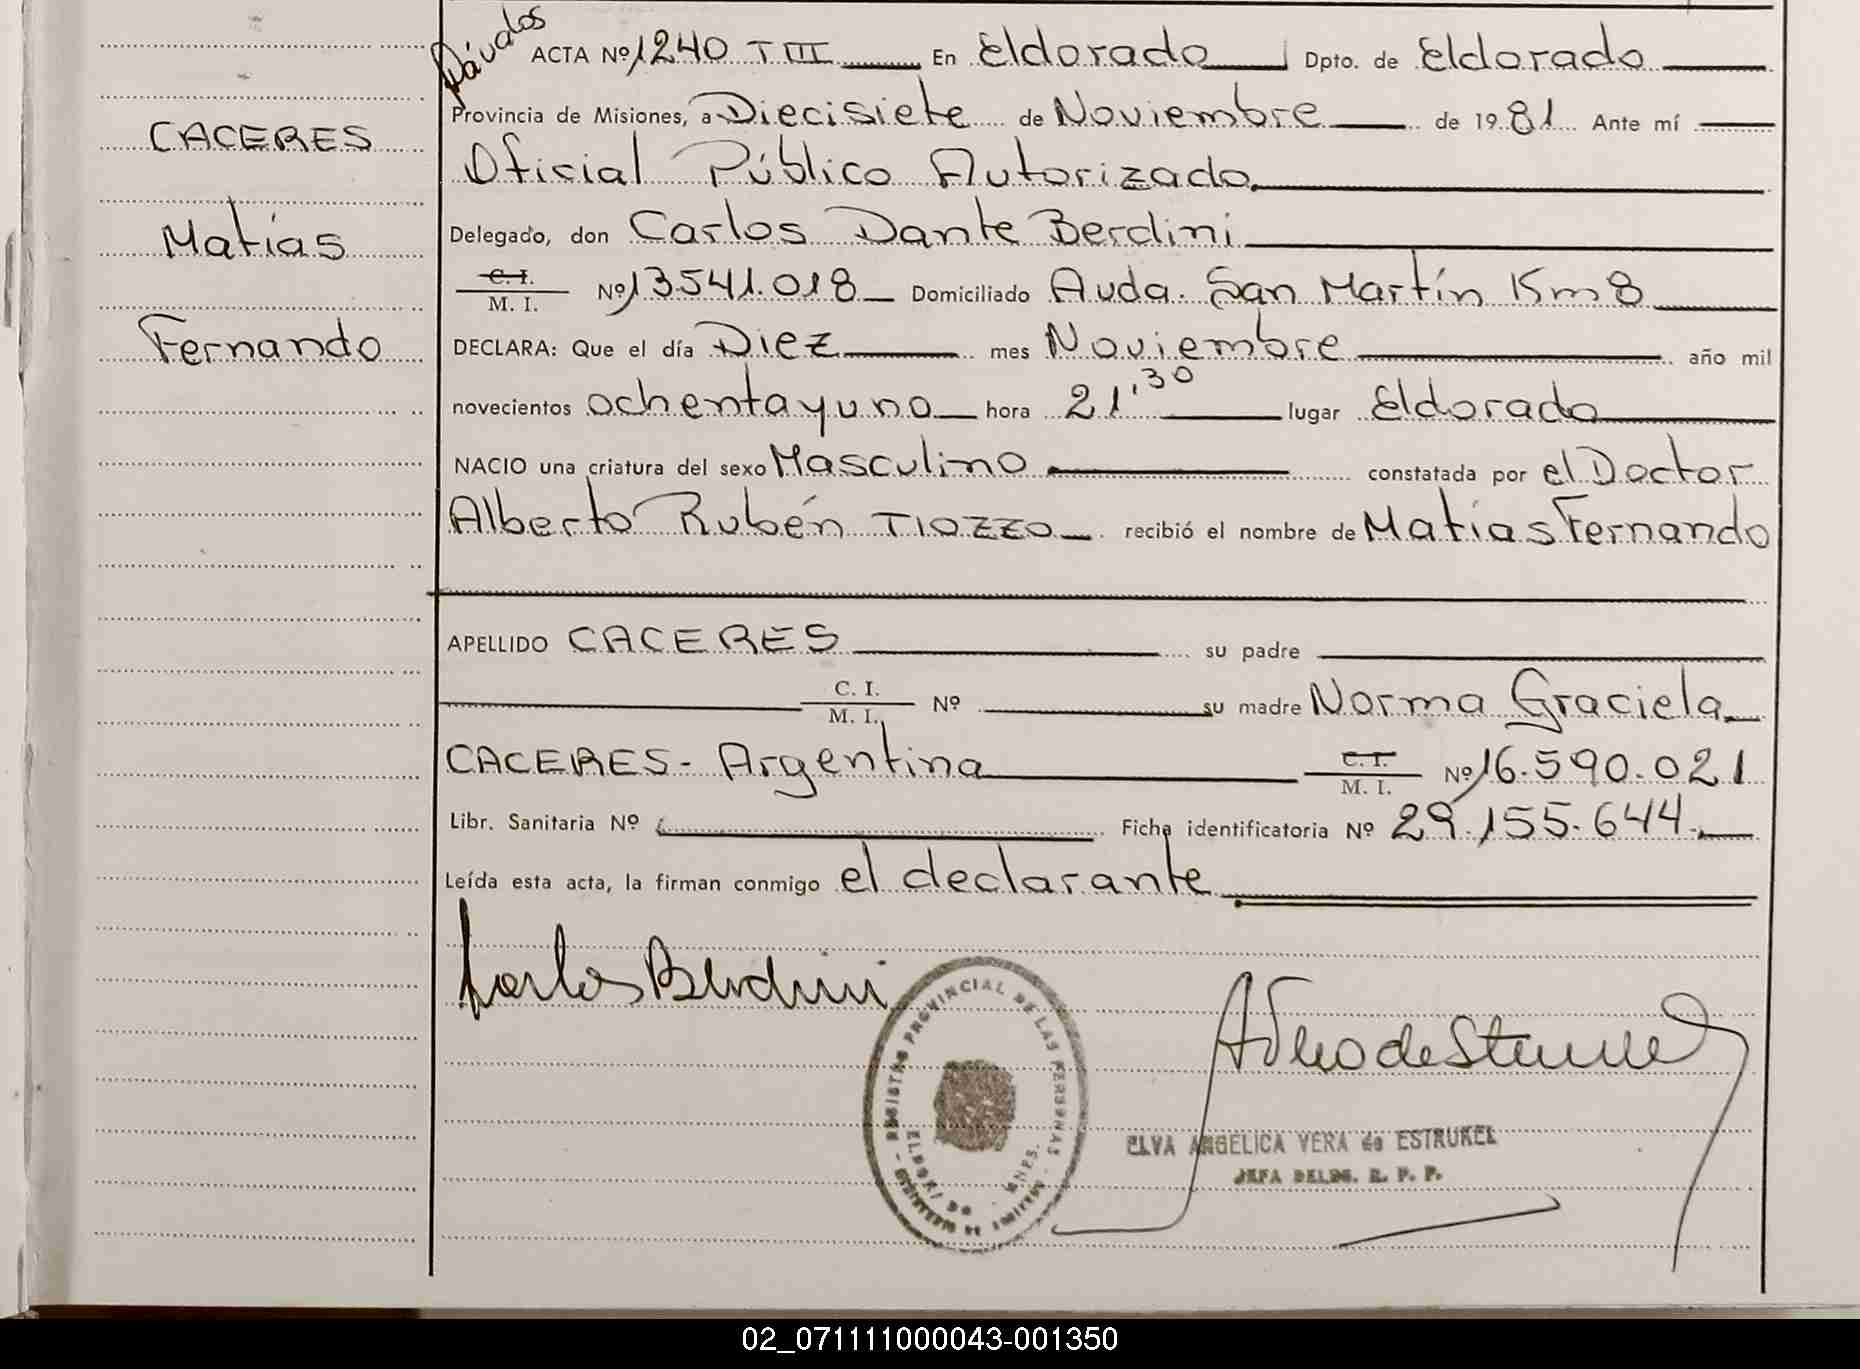 Dávalos
ACTA Nº 1240 T III En Eldorado Dpto. de Eldorado
Provincia de Misiones, a Diecisiete de Noviembre de 1981 Ante mí
Oficial Público Autorizado.
Delegado, don Carlos Dante Berdini
C. I.
M. I. Nº 13541.018 Domiciliado Avda. San Martín Km 8
DECLARA: Que el día Diez mes Noviembre año mil
novecientos ochentayuno hora 21,30 lugar Eldorado
NACIO una criatura del sexo Masculino constatada por el Doctor
Alberto Rubén TIOZZO recibió el nombre de Matías Fernando
APELLIDO CACERES su padre
C. I.
M. I. Nº su madre Norma Graciela
CACERES - Argentina C. I.
M. I. Nº 16.590.021
Libr. Sanitaria Nº Ficha identificatoria Nº 29.155.644.
Leída esta acta, la firman conmigo el declarante
CACERES
Matías
Fernando
Carlos Berdini
REGISTRO PROVINCIAL DE LAS PERSONAS
ELDORADO - MNES.
ELVA ANGELICA VERA de ESTRUKEL
JEFA DELEG. R. P. P.
02_071111000043-001350